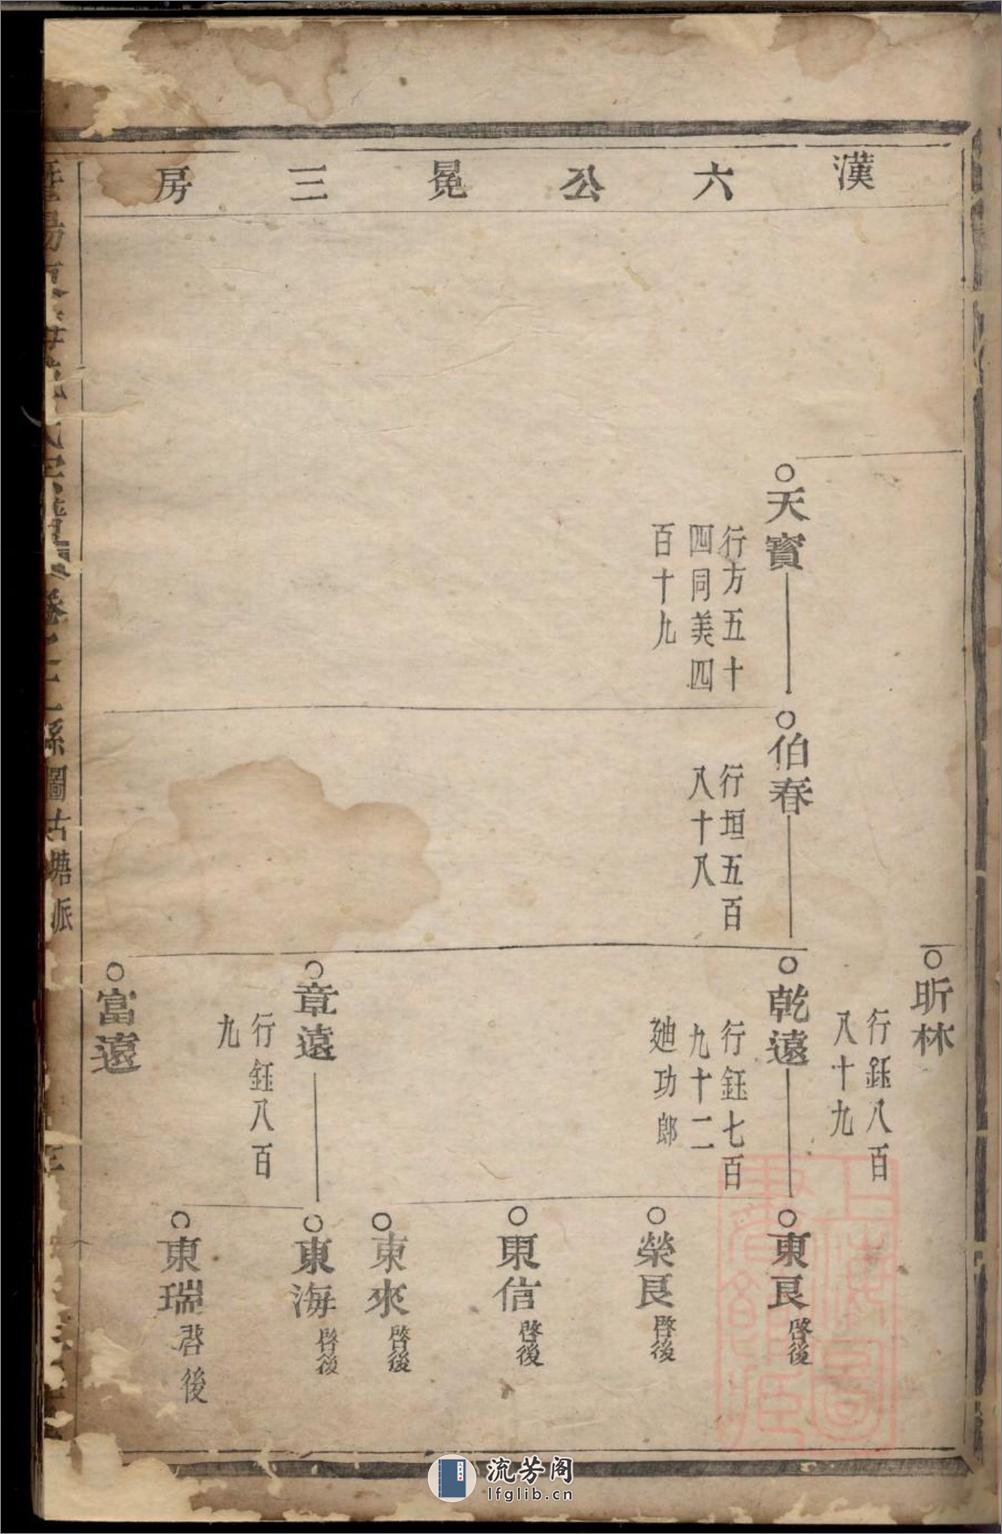 漢六公冕三房
昕林
行鈺八百
八十九
天寳
行方五十
四同美四
百十九
伯春
行垣五百
八十八
乾遠
行鈺七百
九十二
廸功郎
章遠
行鈺八百
九
富遠
東良啓後
榮良啓後
東信啓後
東來啓後
東海啓後
東瑞啓後
系圖古塘派
上海圖書館藏
流芳阁
lfglib.cn